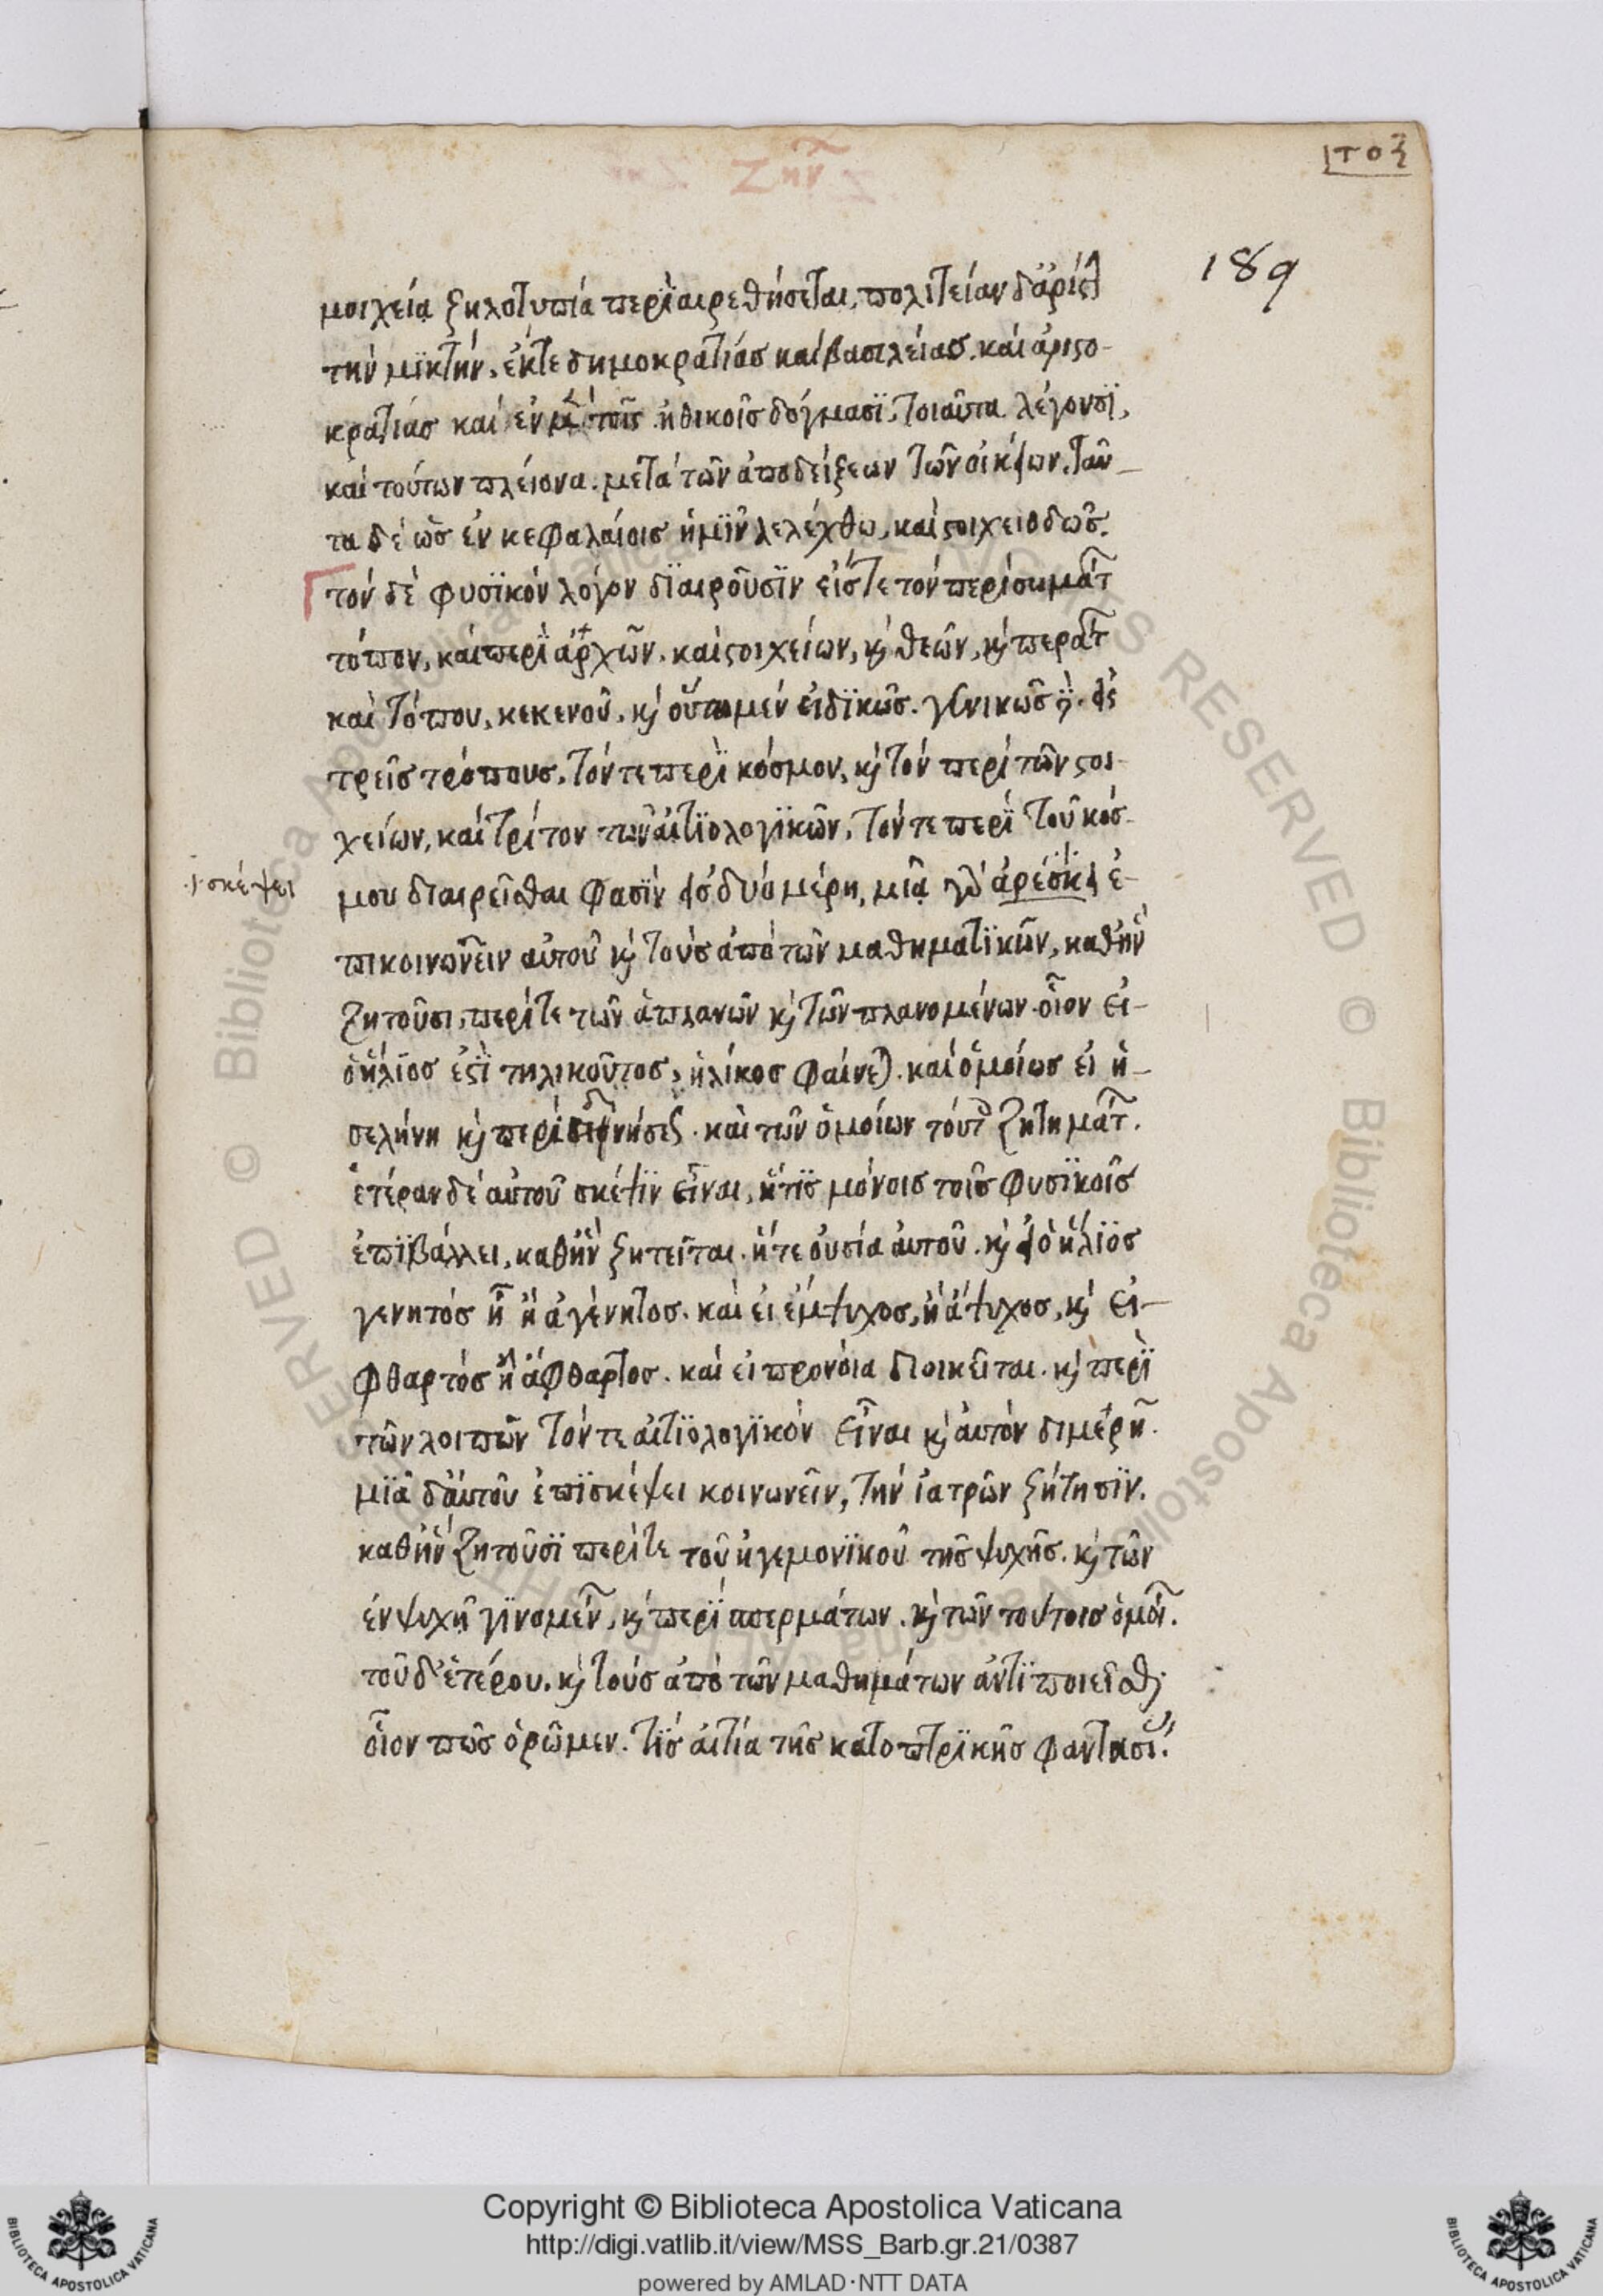 Ζήν
τοζ
189
μοιχεία ζηλοτυπία περϊαιρεθήσεται, πολιτείαν δ' ἀρίστ
την μϊκτὴν, ἔκτε δημοκρατίας καὶ βασιλείας. καὶ ἀριστο-
κρατίας καὶ ἐν μὲν τοῖς ἠθικοῖς δόγμασϊ, τοιαῦτα λέγουσϊ,
καὶ τούτων πλείονα. μετὰ τῶν ἀποδείξεων τῶν οἰκείων. ταῦ-
τα δὲ ὡς ἐν κεφαλαίοις ἡμῖν λελέχθω, καὶ στοιχειοδῶς.
τὸν δὲ φυσϊκὸν λόγον δϊαιροῦσϊν εἴς τε τὸν περὶ σωμάτ
τόπον, καὶ περϊ ἀρχῶν. καὶ στοιχείων, καὶ θεῶν, καὶ περάτ
καὶ τόπου, κεκενοῦ, καὶ οὕτω μὲν εἰδϊκῶς. γενικῶς δὲ. εἰς
τρεῖς τρόπους, τόν τε περϊ κόσμον, καὶ τὸν περὶ τῶν στοι-
χείων, καὶ τρίτον τῶν αἰτϊολογϊκῶν, τόν τε περϊ τοῦ κόσ-
·/· σκέψει
μου διαιρεῖσθαι φασϊν εἰς δύο μέρη, μιᾷ γὰρ ἀρέσκει ἐ-
πικοινωνεῖν αὐτοῦ καὶ τοὺς ἀπὸ τῶν μαθηματϊκῶν, καθ' ἣν
ζητοῦσι, περί τε τῶν ἀπλανῶν καὶ τῶν πλανομένων. οἷον εἰ-
ὁ ἥλϊος ἐστϊ τηλικοῦτος, ἡλίκος φαίνεται. καὶ ὁμοίως εἰ ἡ-
σελήνη καὶ περὶ δινήσεως. καὶ τῶν ὁμοίων τούτοις ζητημάτ.
ἑτέραν δὲ αὐτοῦ σκέψϊν εἶναι, ἥτϊς μόνοις τοῖς φυσϊκοῖς
ἐπϊβάλλει, καθ' ἣν ζητεῖται. ἥ τε οὐσία αὐτοῦ. καὶ εἰ ὁ ἥλϊος
γενητός ἢ ἢ ἀγένητος. καὶ εἰ ἔμψυχος, ἢ ἄψυχος, καὶ εἰ-
φθαρτὸς ἢ ἄφθαρτος. καὶ εἰ προνόια διοικεῖται. καὶ περϊ
τῶν λοιπῶν τόν τε αἰτϊολογϊκὸν εἶναι καὶ αὐτὸν διμερῆ.
μϊᾷ δ' αὐτοῦ ἐπϊσκέψει κοινωνεῖν, τὴν ἰατρῶν ζήτησϊν.
καθ' ἣν ζητοῦσϊ περί τε τοῦ ἡγεμονϊκοῦ τῆς ψυχῆς. καὶ τῶν
ἐν ψυχῇ γϊνομέν, καὶ περϊ σπερμάτων. καὶ τῶν τούτοις ὁμοί.
τοῦ δ' ἑτέρου. καὶ τοὺς ἀπὸ τῶν μαθημάτων ἀντϊποιεῖσθαι
οἷον πῶς ὁρῶμεν. τϊς αἰτία τῆς κατοπτρϊκῆς φαντασί.
Copyright © Biblioteca Apostolica Vaticana
http://digi.vatlib.it/view/MSS_Barb.gr.21/0387
powered by AMLAD·NTT DATA